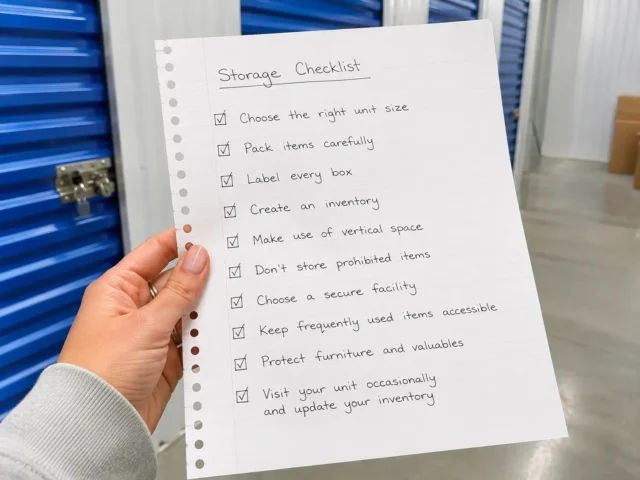 Storage Checklist
Choose the right unit size
Pack items carefully
Label every box
Create an inventory
Make use of vertical space
Don't store prohibited items
Choose a secure facility
Keep frequently used items accessible
Protect furniture and valuables
Visit your unit occasionally
and update your inventory